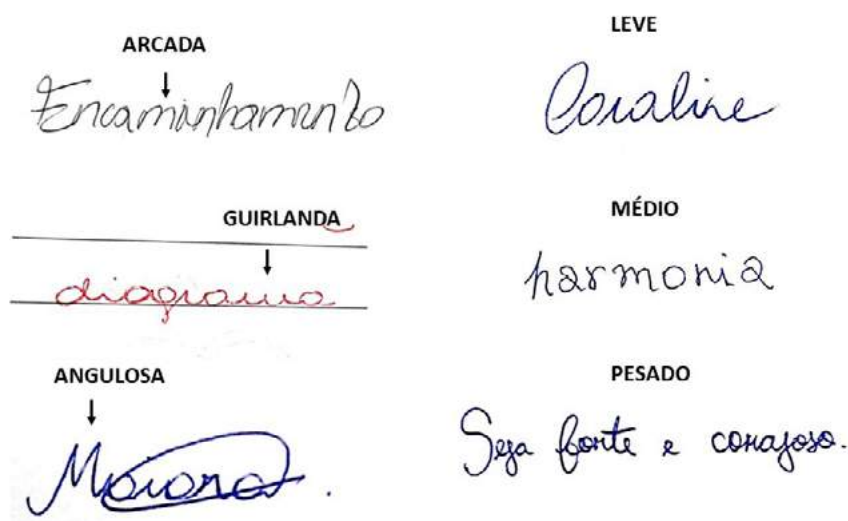 ARCADA
Encaminhamento
GUIRLANDA
diagrama
ANGULOSA
LEVE
Coraline
MÉDIO
harmonia
PESADO
Seja forte e corajoso.